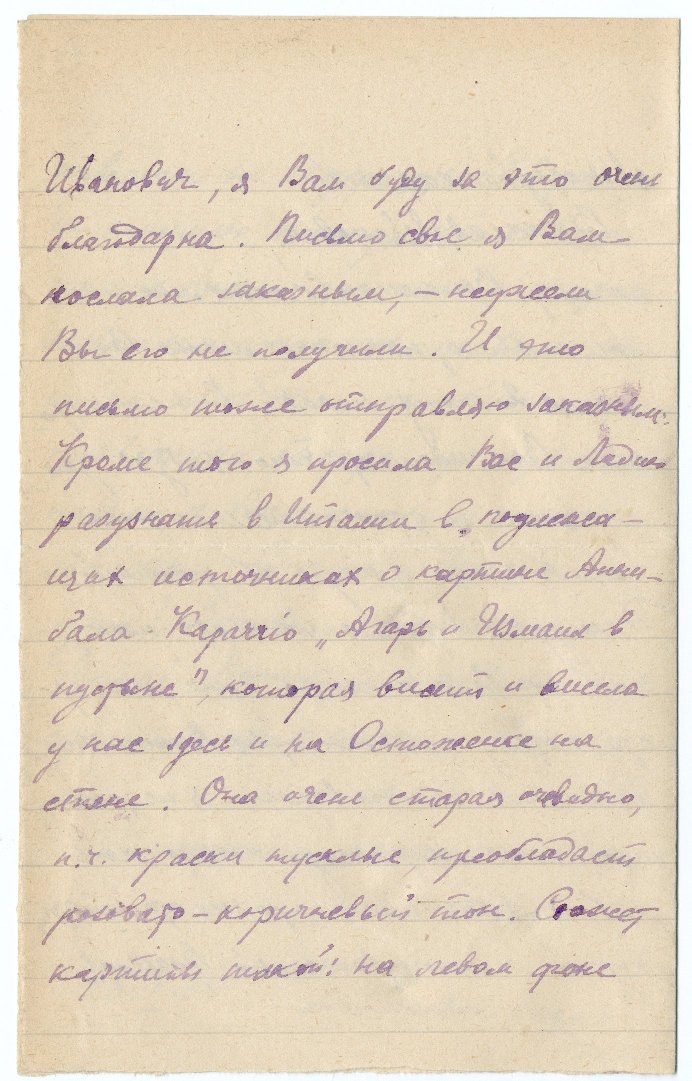 Иванович, я Вам буду за это очень
благодарна. Письмо свое я Вам
послала заказным, – неужели
Вы его не получили. И это
письмо тоже отправляю заказным.
Кроме того я просила Вас и
разузнать в Италии в подлежа-
щих источниках о картине Анни-
бала Караччiо „Агарь и Измаил в
пустыне", которая висит и висела
у нас здесь и на Остоженке на
стене. Она очень старая очевидно,
п.ч. краски тусклые, преобладает
розовато-коричневый тон. Сюжет
картины такой: на левом фоне